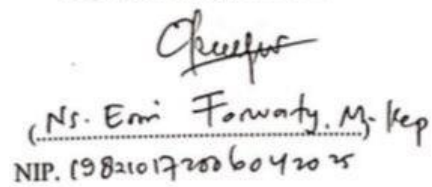 (Ns. Erni Forwaty, M. Kep)
NIP. 198210172006042025